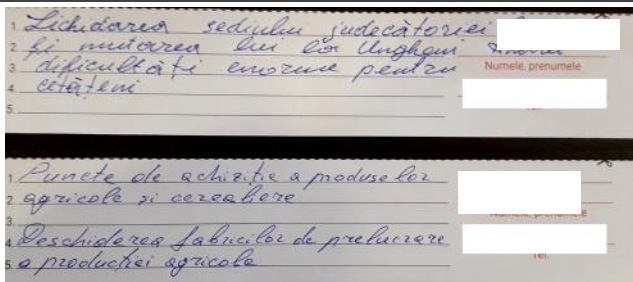 1. Lichidarea sediului judecătoriei
2. și mutarea lui la Ungheni
3. dificultăți enorme pentru
Numele, prenumele
4. cetățeni
5.
1. Puncte de achiziție a produselor
2. agricole și cerealiere
3.
4. Deschiderea fabricilor de prelucrare
5. a producției agricole
Tel.